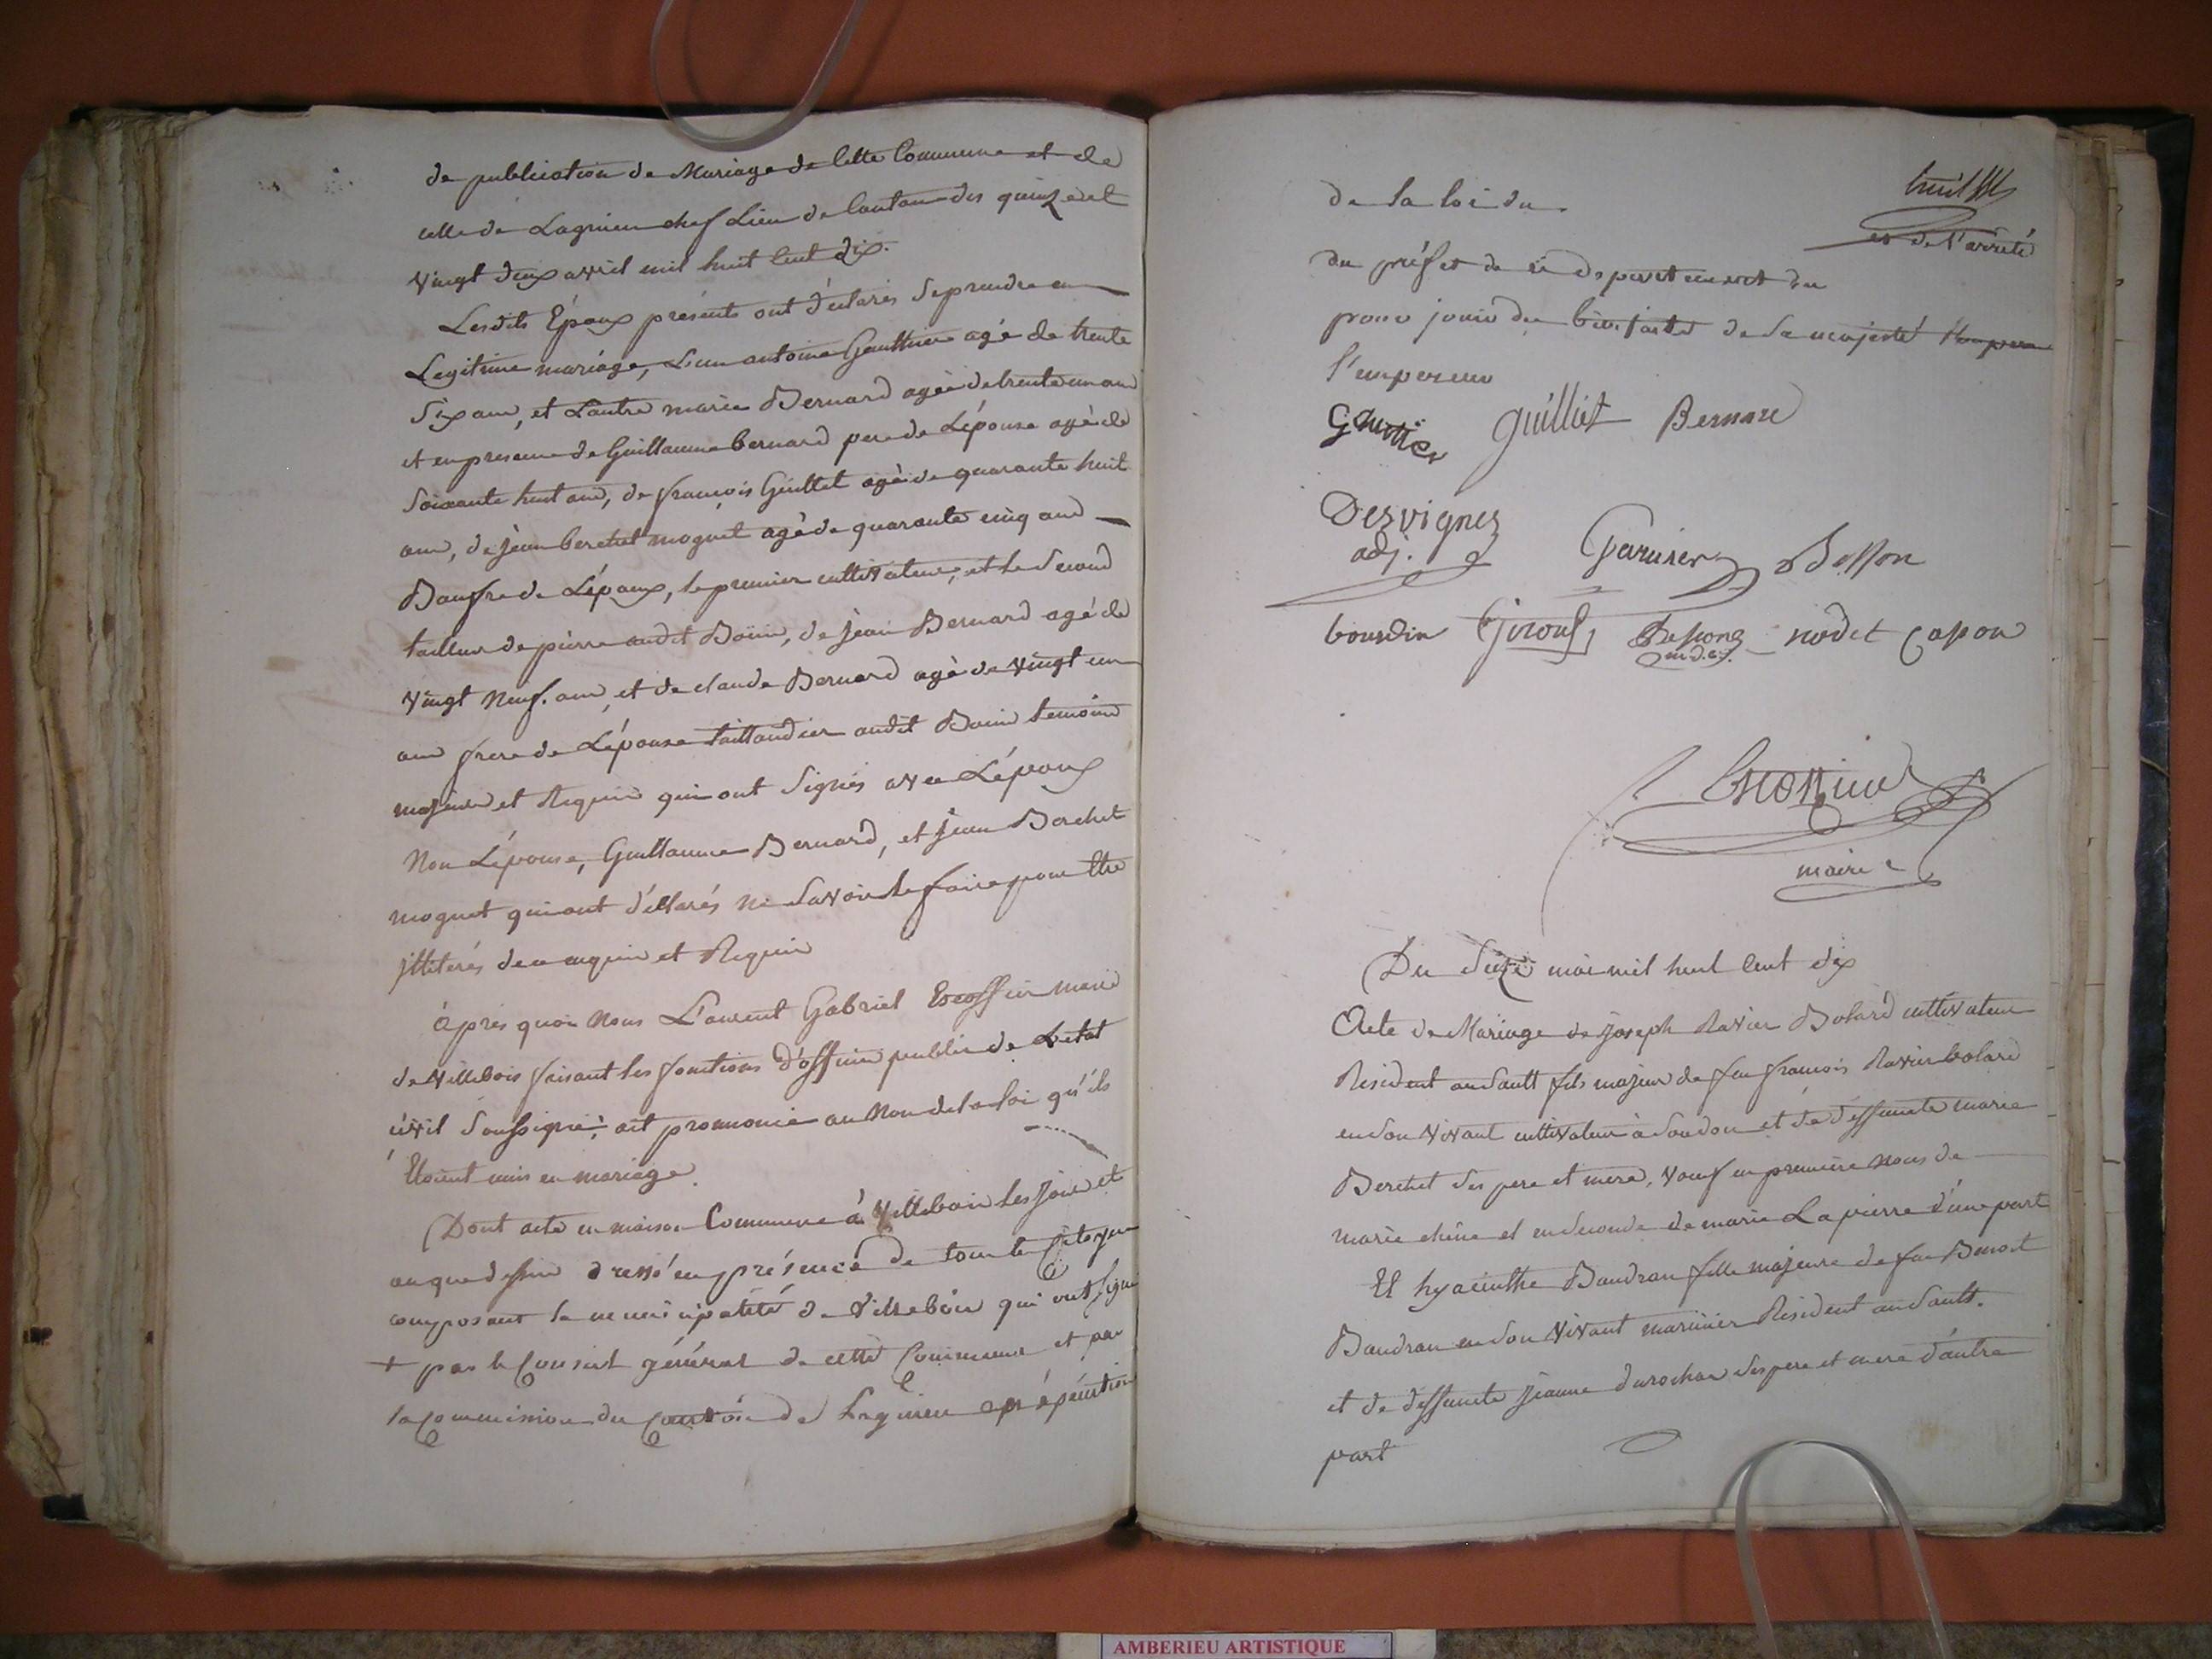 de publication de Mariage de Cette Commune et de
celle de Lagnieu chef Lieu de Canton des quinze et
Vingt deux avril mil huit Cent dix.
Lesdits Epoux présents ont déclarés Se prendre en
Legitime mariage, L'un antoine Gauthier agé de trente
Six ans, et L'autre marie Bernard agée de trente un ans
et en presence de Guillaume bernard pere de L'épouse agé de
Soixante huit ans, de françois Guillet agé de quarante huit
ans, de jean berchet moguet agé de quarante cinq ans
de L'époux, le premier cultivateur, et le Second
tailleur de pierre audit Bouis, de jean Bernard agé de
Vingt Neuf. ans, et de claude Bernard agé de Vingt un
ans frere de L'épouse taillandier audit Bouis temoins
majeurs et Requis qui ont Signés avec L'époux
Non L'épouse, Guillaume Bernard, et jean Berchet
moguet qui ont déclarés ne Savoir le faire pour Etre
jlliterés de ce enquis et Requis
Après quoi Nous Laurent Gabriel Escoffier maire
de Villebois faisant les fonctions d'officier public de L'etat
civil Soussigné, ait prononcé au Nom de la loi qu'ils
Etoient unis en mariage.
Dont acte en maison Commune à Villebois les jour et
an que dessus dressé en présence de tous les Citoyens
composant la municipalité de Villebois qui ont signé
+ par le Conseil général de cette Commune et par
la Commission du Canton de Lagnieu
de la loi du
et de l'arreté
du préfet de ce departement du
pour jouir du bienfait de Sa majesté
l'empereur
Gautier guilliet Bernard
Desvignes
adj. Garnier Bosson
bourdin Girouf nodet Capon
Escoffier
maire
Du Seize mai mil huit Cent dix
Acte de Mariage de joseph Ravier Bolard cultivateur
Resident au Sault fils majeur de feu françois Ravier bolard
en Son Vivant cultivateur à Soudon et de deffunte marie
Berchet Ses pere et mere, Veuf en premiere Noces de
marie chêne et en Seconde de marie Lapierre d'une part
Et hyacinthe Baudran fille majeure de feu Benoit
Baudran en Son Vivant marinier Resident au Sault.
et de deffunte jeanne durochat Ses pere et mere d'autre
part
AMBERIEU ARTISTIQUE